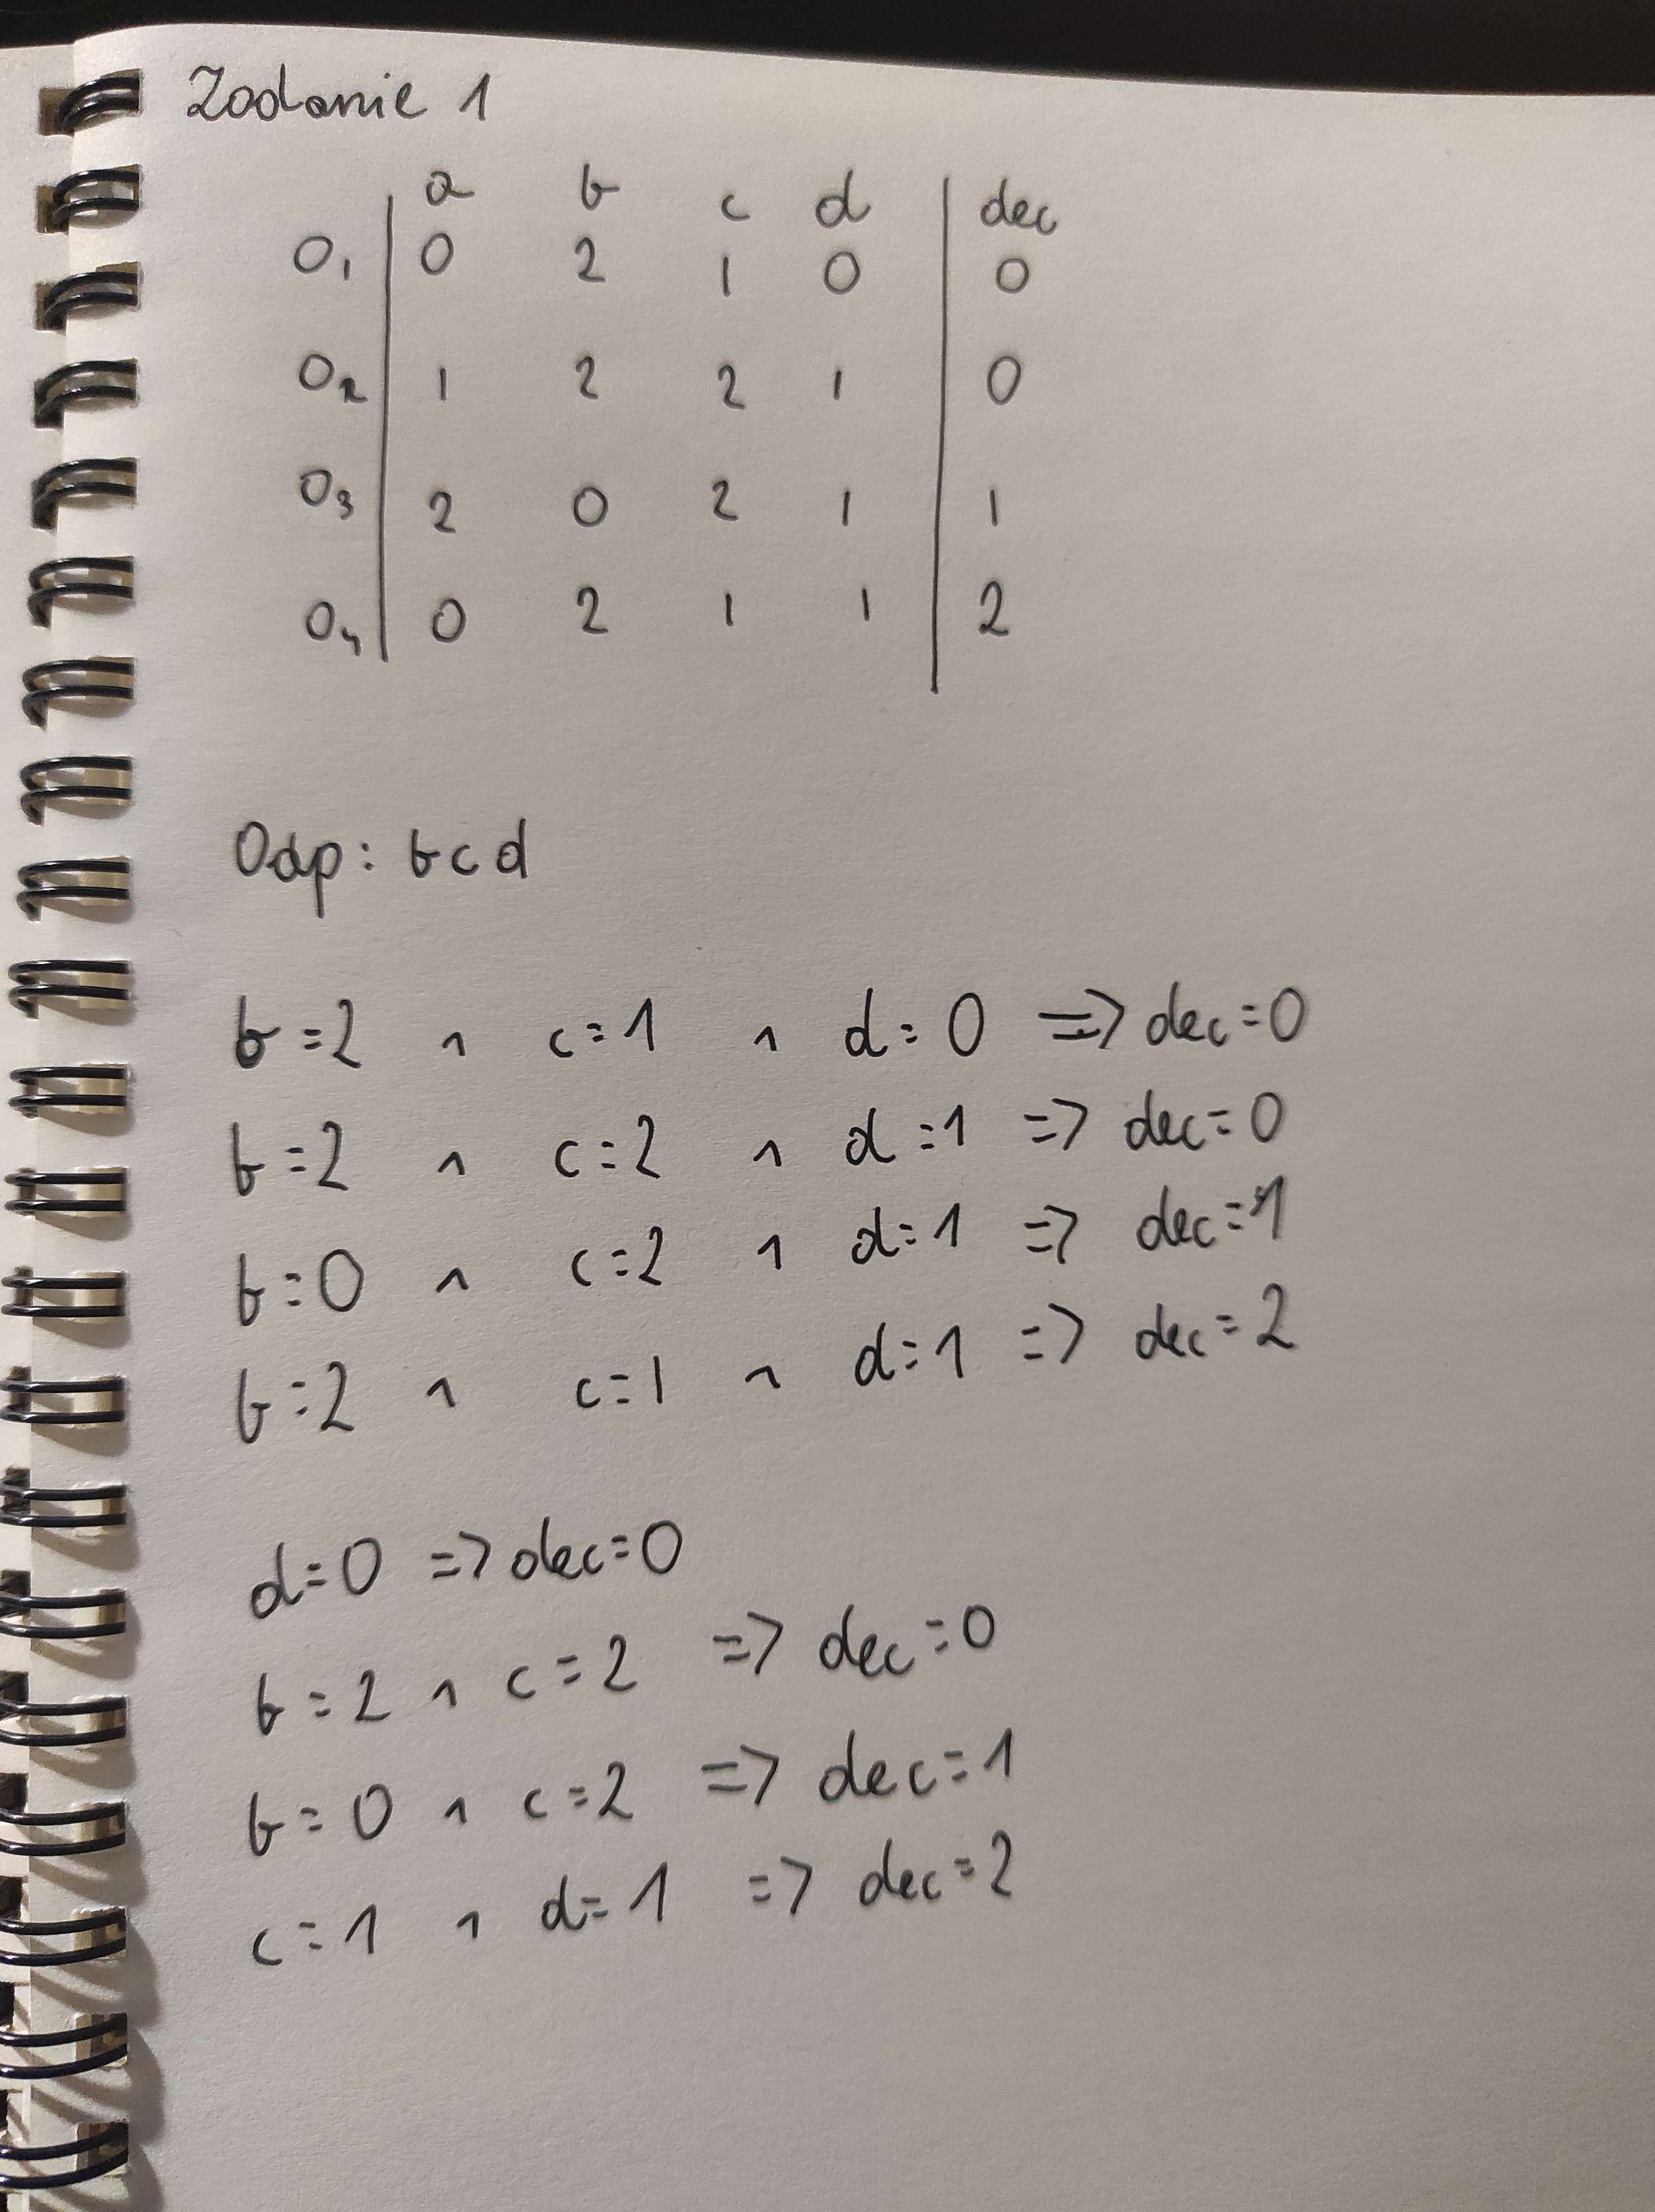 Zadanie 1
a b c d dec
O1 0 2 1 0 0
O2 1 2 2 1 0
O3 2 0 2 1 1
O4 0 2 1 1 2
Odp: b c d
b=2 ∧ c=1 ∧ d=0 => dec=0
b=2 ∧ c=2 ∧ d=1 => dec=0
b=0 ∧ c=2 ∧ d=1 => dec=1
b=2 ∧ c=1 ∧ d=1 => dec=2
d=0 => dec=0
b=2 ∧ c=2 => dec=0
b=0 ∧ c=2 => dec=1
c=1 ∧ d=1 => dec=2